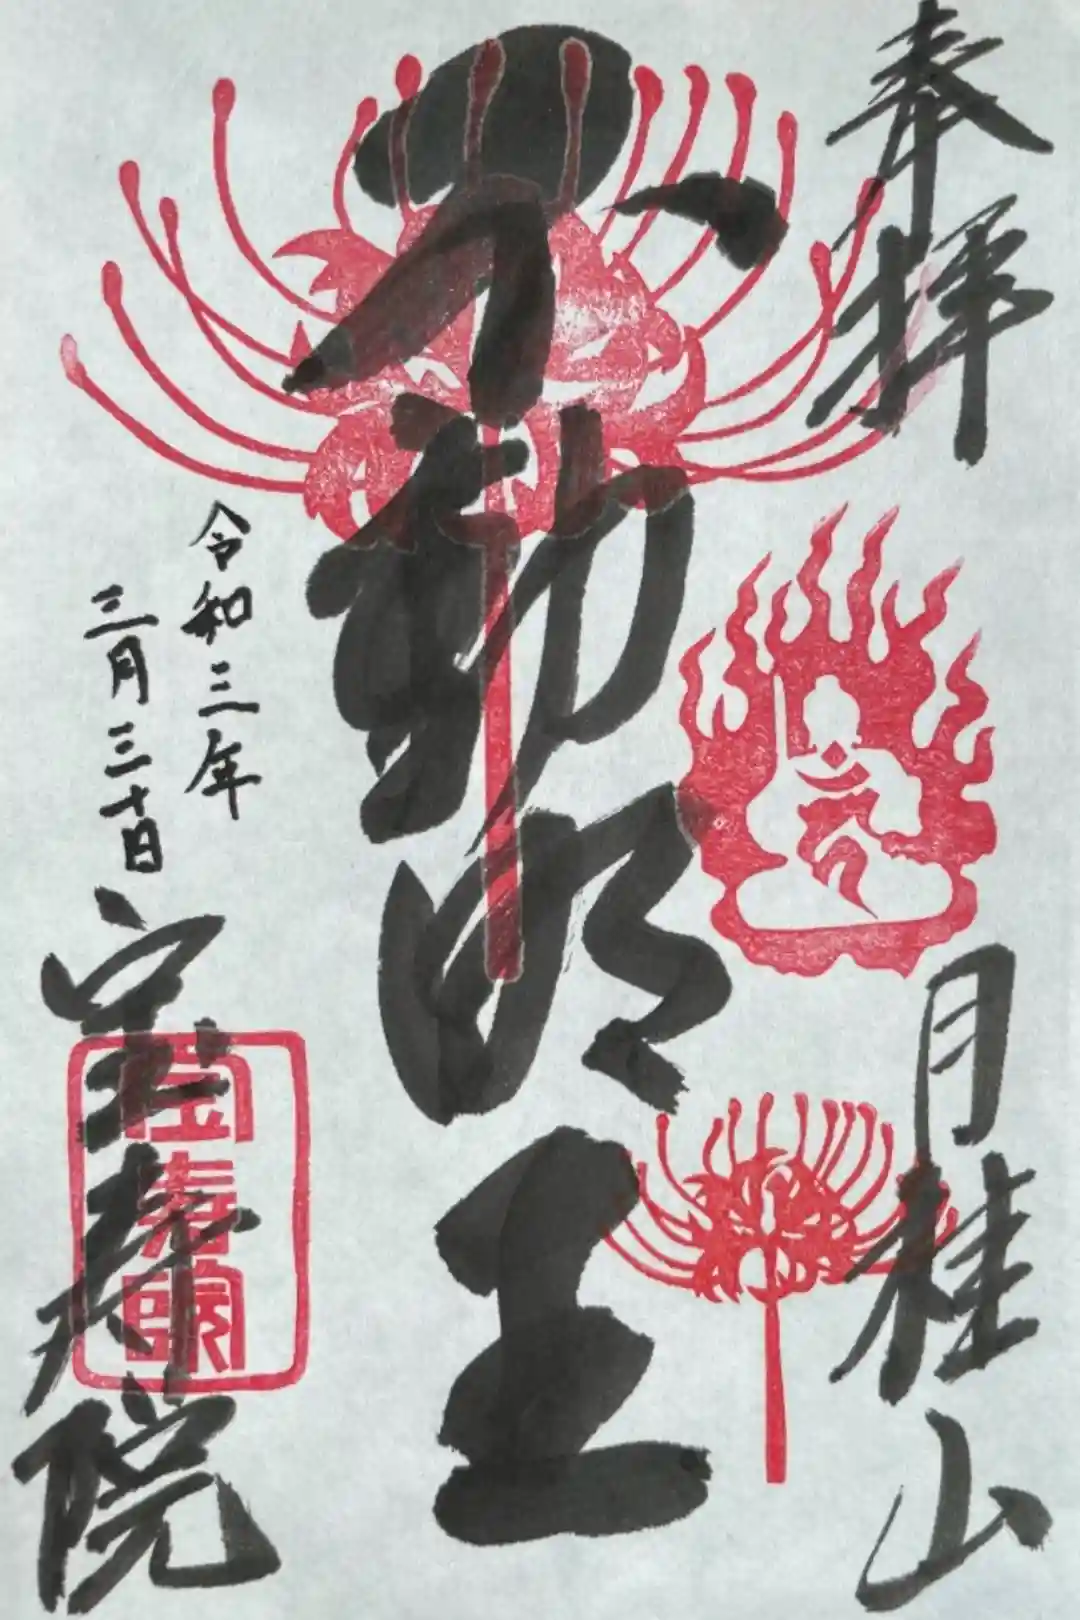 奉拝
月桂山
不動明王
令和三年
三月三十日
宝寿院
宝寿院